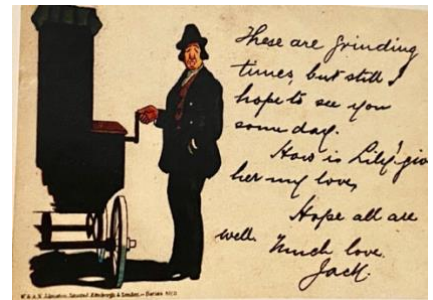 These are grinding
times, but still I
hope to see you
some day.
How is Lily? give
her my love,
Hope all are
well. Much love.
Jack.
Edinburgh & London. — Series